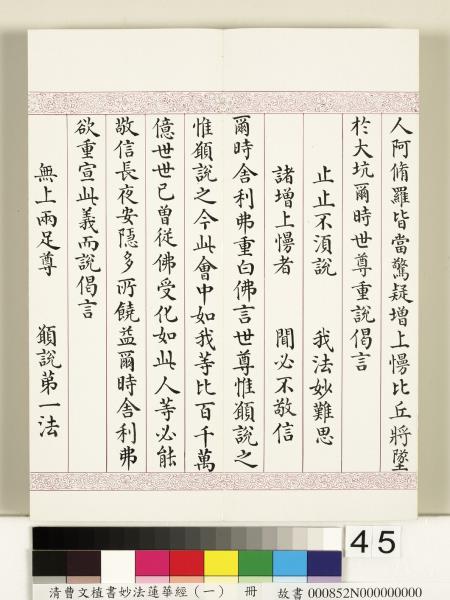 人阿脩羅皆當驚疑增上慢比丘將墜
於大坑爾時世尊重說偈言
止止不須說 我法妙難思
諸增上慢者 聞必不敬信
爾時舍利弗重白佛言世尊惟願說之
惟願說之今此會中如我等比百千萬
億世世已曾從佛受化如此人等必能
敬信長夜安隱多所饒益爾時舍利弗
欲重宣此義而說偈言
無上兩足尊 願說第一法
45
清曹文植書妙法蓮華經(一) 冊 故書 000852N000000000